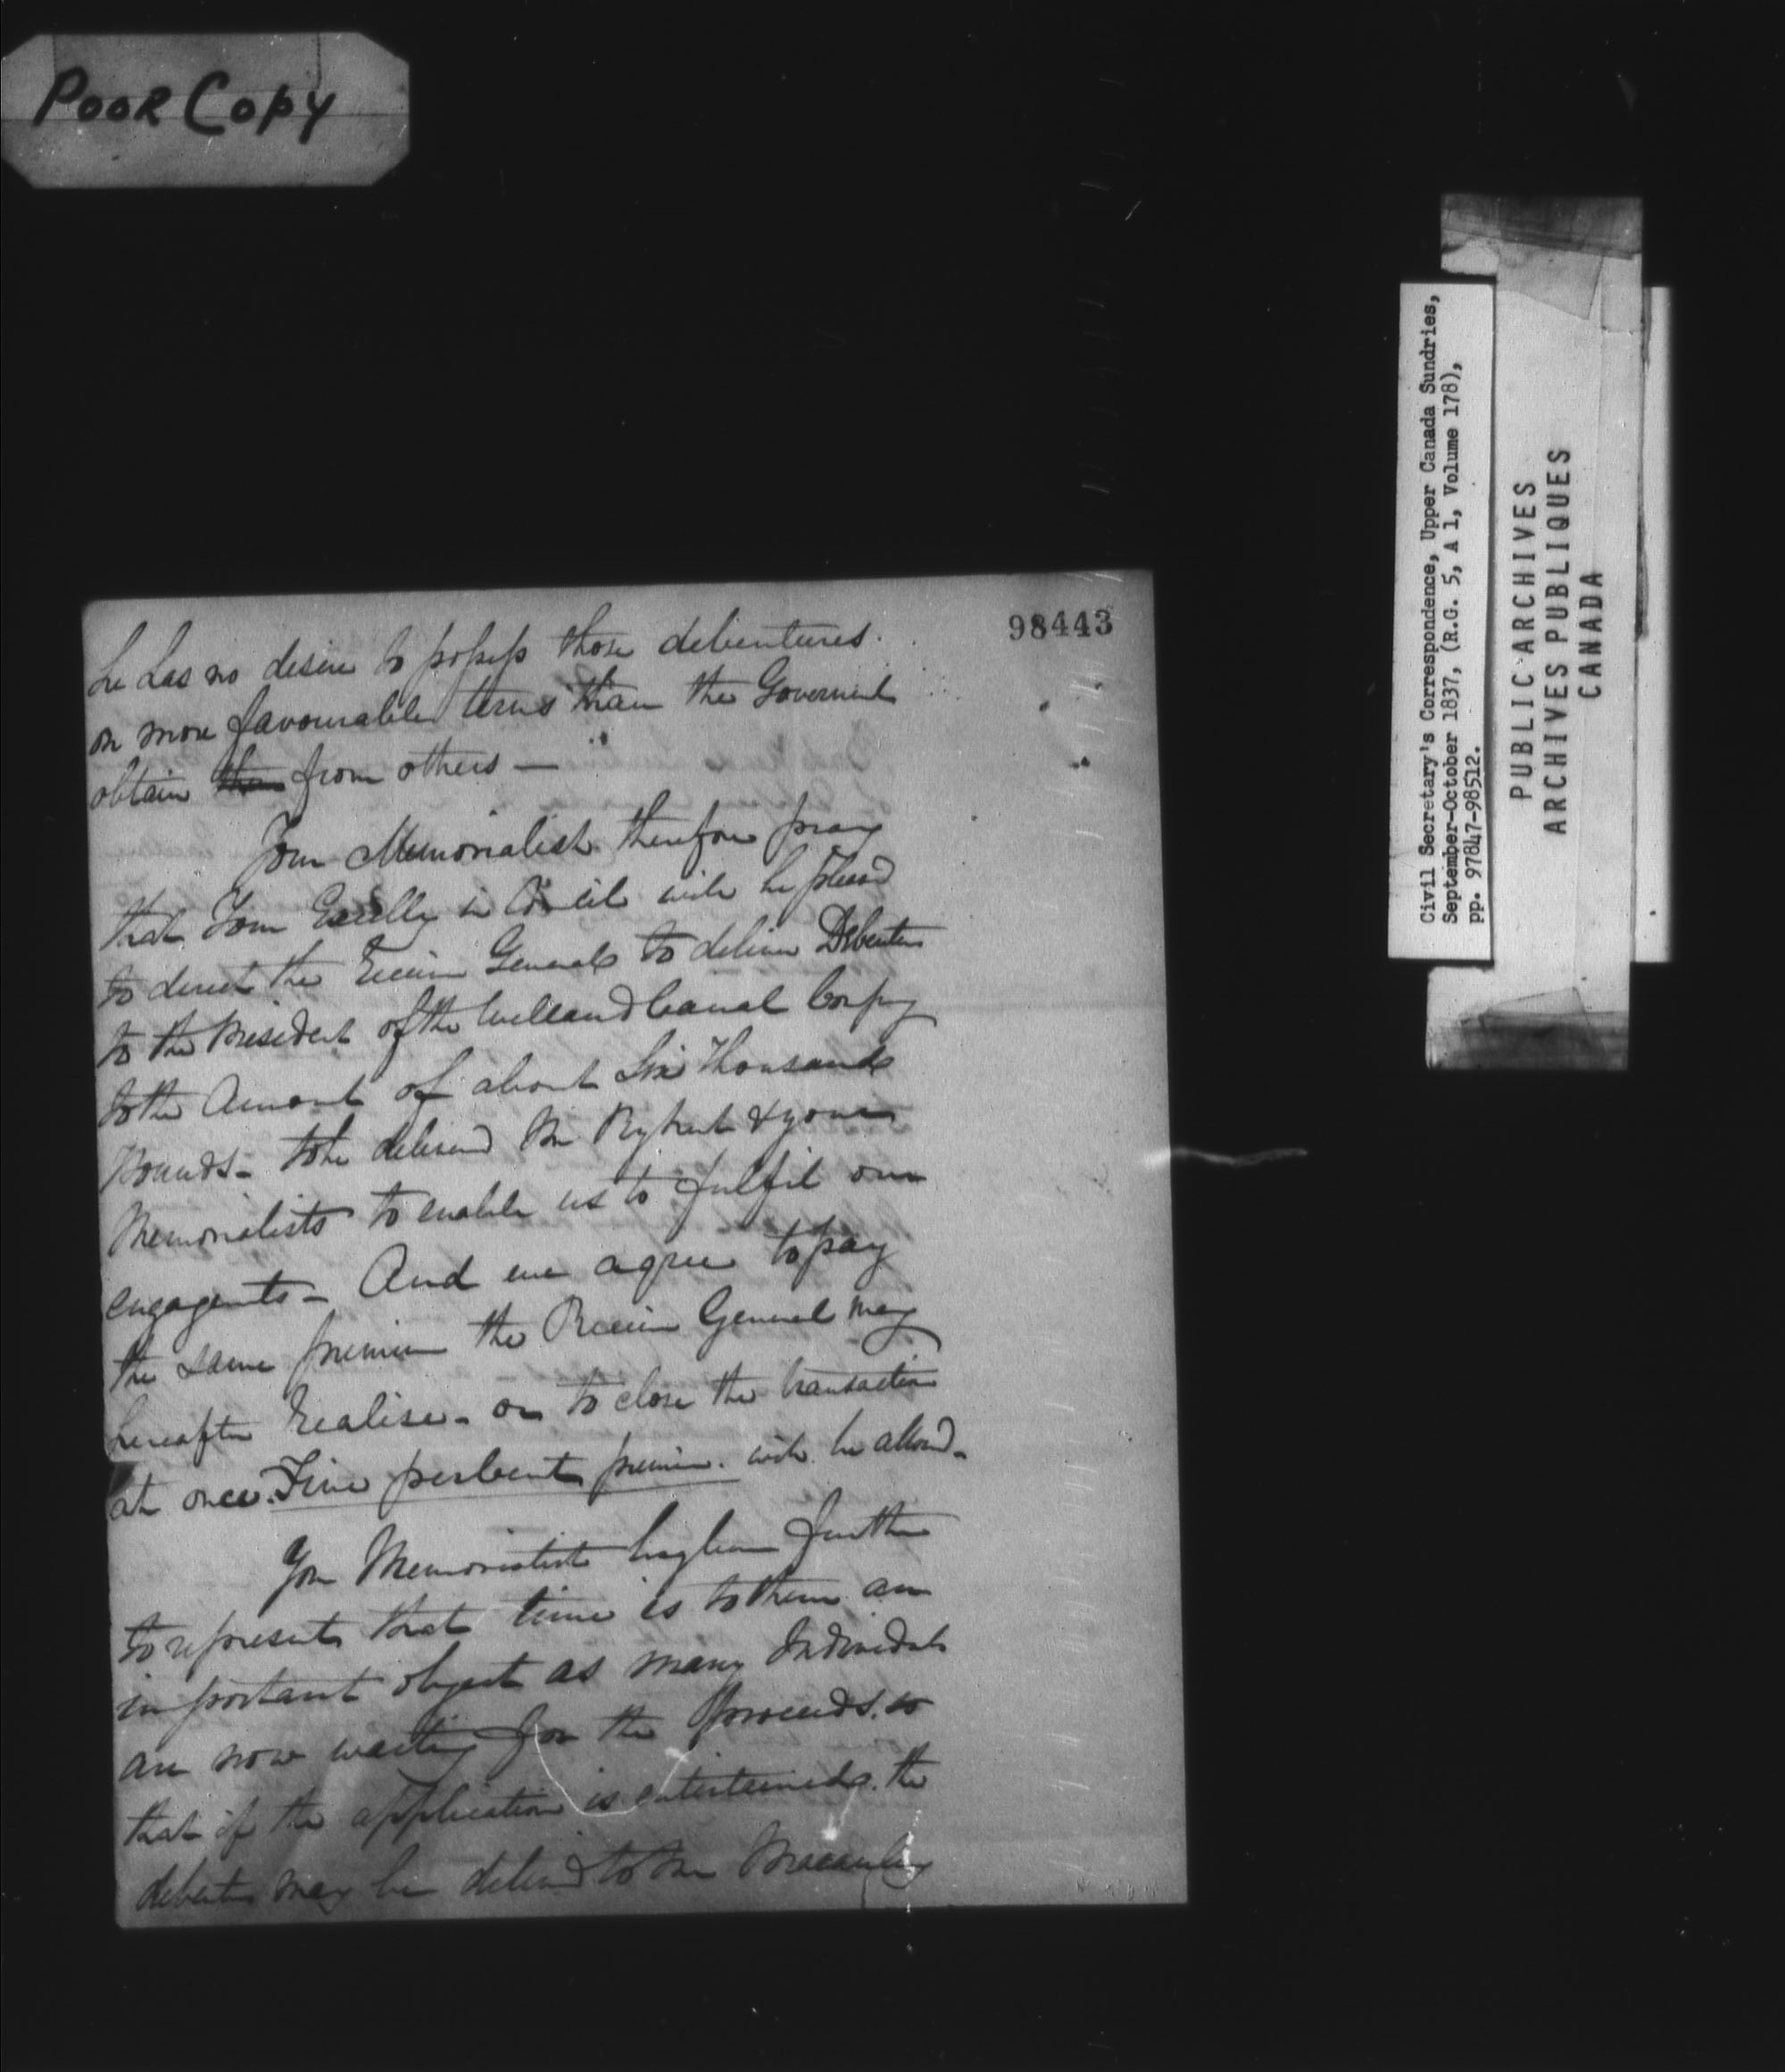 Poor Copy
98443
he has no desire to possess those debentures
on more favourable terms than the Governmt
obtain them from others —
Your Memorialists therefore pray
that Your Excelly in Council will be pleasd
to direct the Receiver General to deliver Debentures
to the President of the Welland Canal Compy
to the Amount of about Six Thousand
Pounds - to be deliverd Mr Rykert & your
Memorialists to enable us to fulfil our
engagemts - And we agree to pay
the same premium the Receiver General may
hereafter Realise - or to close the transaction
at once. Five per Cent premium. will be allowd -
Your Memorialists beg leave further
to represent that time is to them an
important object as many Individuals
are now waiting for the Proceeds. so
that if the application is entertained. the
debentures may be deliverd to Mr Macaulay
Civil Secretary's Correspondence, Upper Canada Sundries,
September-October 1837, (R.G. 5, A 1, Volume 178),
pp. 97847-98512.
PUBLIC ARCHIVES
ARCHIVES PUBLIQUES
CANADA